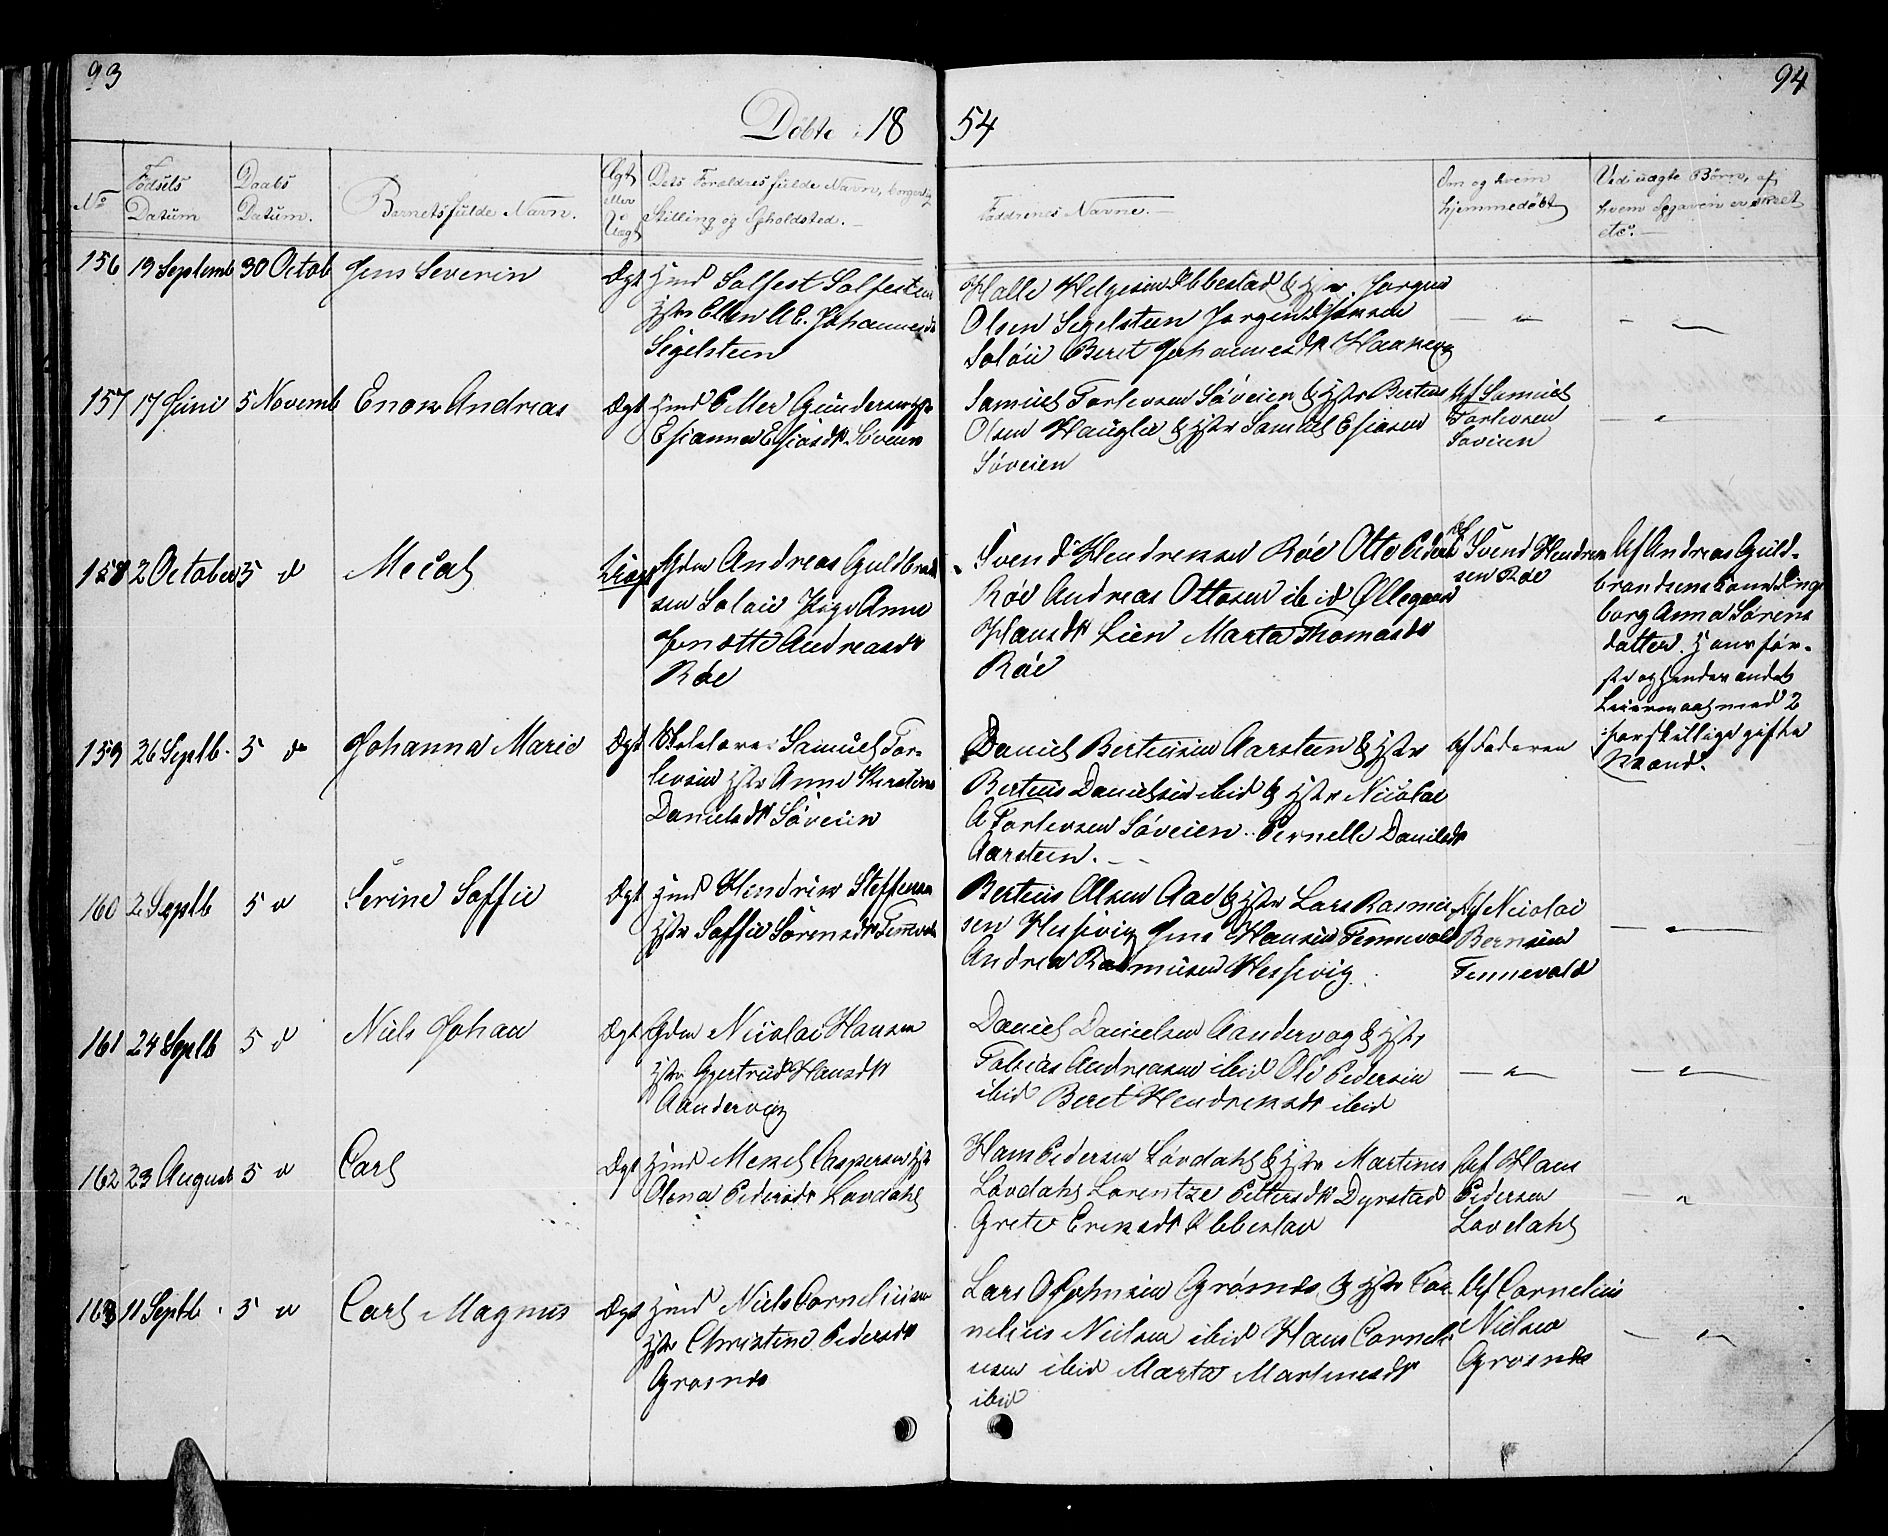 93
94
Döbte i 18 54
No
Födsels Datum
Daabs Datum.
Barnets fulde Navn.
Ægt eller Uægt
Dets Forældres fulde Navn, borgerlig
Stilling og Opholdsted.
Faddrenes Navne.
Om og hvem
hjemmedöbt
Ved uægte Börn, af
hvem Opgaven er skeet
etc.
156 19 Septemb 30 Octob Jens Severin Ægt Hmd Solfest Solfestsen
Hstr Ellen A E. Johannesdr
Segelsteen
Halle Helgesen Ibbestad & Hstr. Jørgen
Olsen Segelsteen Jørgen Johnsen
Soløii Beret Johannesdr
157 17 Juni 5 Novemb Enok Andreas Ægt Hmd Peller Gundersen Hstr
Esianna Esiasdr. Søveien
Samuel Torlevsen Søveien & Hstr Berteus
Olsen Hauglie & Hstr Samuel Esiasen
Søveien
Af Samuel
Torlevsen
Søveien
158 2 October 5 d Mecal Uægt Gdm Andreas Guldbrand
sen Soløii Pige Anne
Jensette Andreasdr
Røe
Svend Hendriksen Røe Otto Peders
Røe Andreas Ottosen ibid Øllegaard
Hansdr Lien Marta Thomasdr
Røe
Af Svend Hendrik
sen Røe
Af Andreas Guld-
brandsen samt Inge
borg Anna Sørens
datter. Hans før-
ste og hendes andet
Leiermaal med 2
forskjellige gifte
Mænd.
159 26 Septb. 5 d Johanna Marie Ægt Skolelærer Samuel Tor-
levsen Hstr Anne Kirstine
Danielsdr Søveien
Daniel Berteusen Aarsteen & Hstr
Berteus Danielsen ibid & Hstr Nicolai
A Torlevsen Søveien. Pernelle Danielsdr
Aarsteen.
Af Faderen
160 2 Septb 5 d Serine Soffie Ægt Hmd Hendrik Steffensen
Hstr Soffie Sørensdr Tennevold
Berteus Olsen Aae & Hstr Lars Rasmus
sen Hessevig Jens Hansen Tennevold
Andrea Rasmusen Hessevig.
Af Nicolai
Berntsen
Tennevold
161 24 Septb 5 d Niels Johan Ægt Gdm Nicolai Hansen
Hstr Gjertrud Hansdr
Aandervog
Daniel Danielsen Aandervog & Hstr
Tobias Andreasen ibid Ole Pedersen
ibid Beret Hendriksdr ibid
162 23 August 5 d Carl Ægt Hmd Mekel Caspersen Hstr
Olena Pedersdr Løvdahl
Hans Pedersen Løvdahl & Hstr Martines
Løvdahl Lorentze Pettersdr Dyrstad
Grete Eriksdr Ibbestad
Af Hans
Pedersen
Løvdahl
163 11 Septb. 5 d Carl Magnus Ægt Hmd Niels Corneliusen
Hstr Christine Pedersdr
Grøsnes
Lars O Johnsen Grøsnes & Hstr Cor-
nelius Nielsen ibid Hans Corneli
usen ibid Marta Martinesdr
ibid
Af Cornelius
Nielsen
Grøsnes